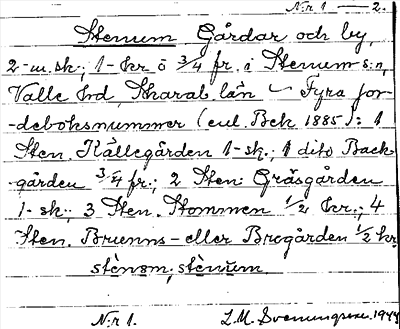 Nr 1 — 2.
Stenum Gårdar och by,
2-m.sk; 1-kr ö 3/4 fr. i Stenum s:n,
Valle hd, Skarab. län — Fyra jor-
-deboksnummer (enl. Bek 1885): 1
Sten. Källegården 1-sk.; 1 dito Back-
gården 3/4 fr.; 2 Sten. Gräsgården
1-sk.; 3 Sten. Stommen 1/2 kr.; 4
Sten. Brunns- eller Brogården 1/2 kr.
stenom; stenum
Nr 1. L.M. Svenungsson. 1944